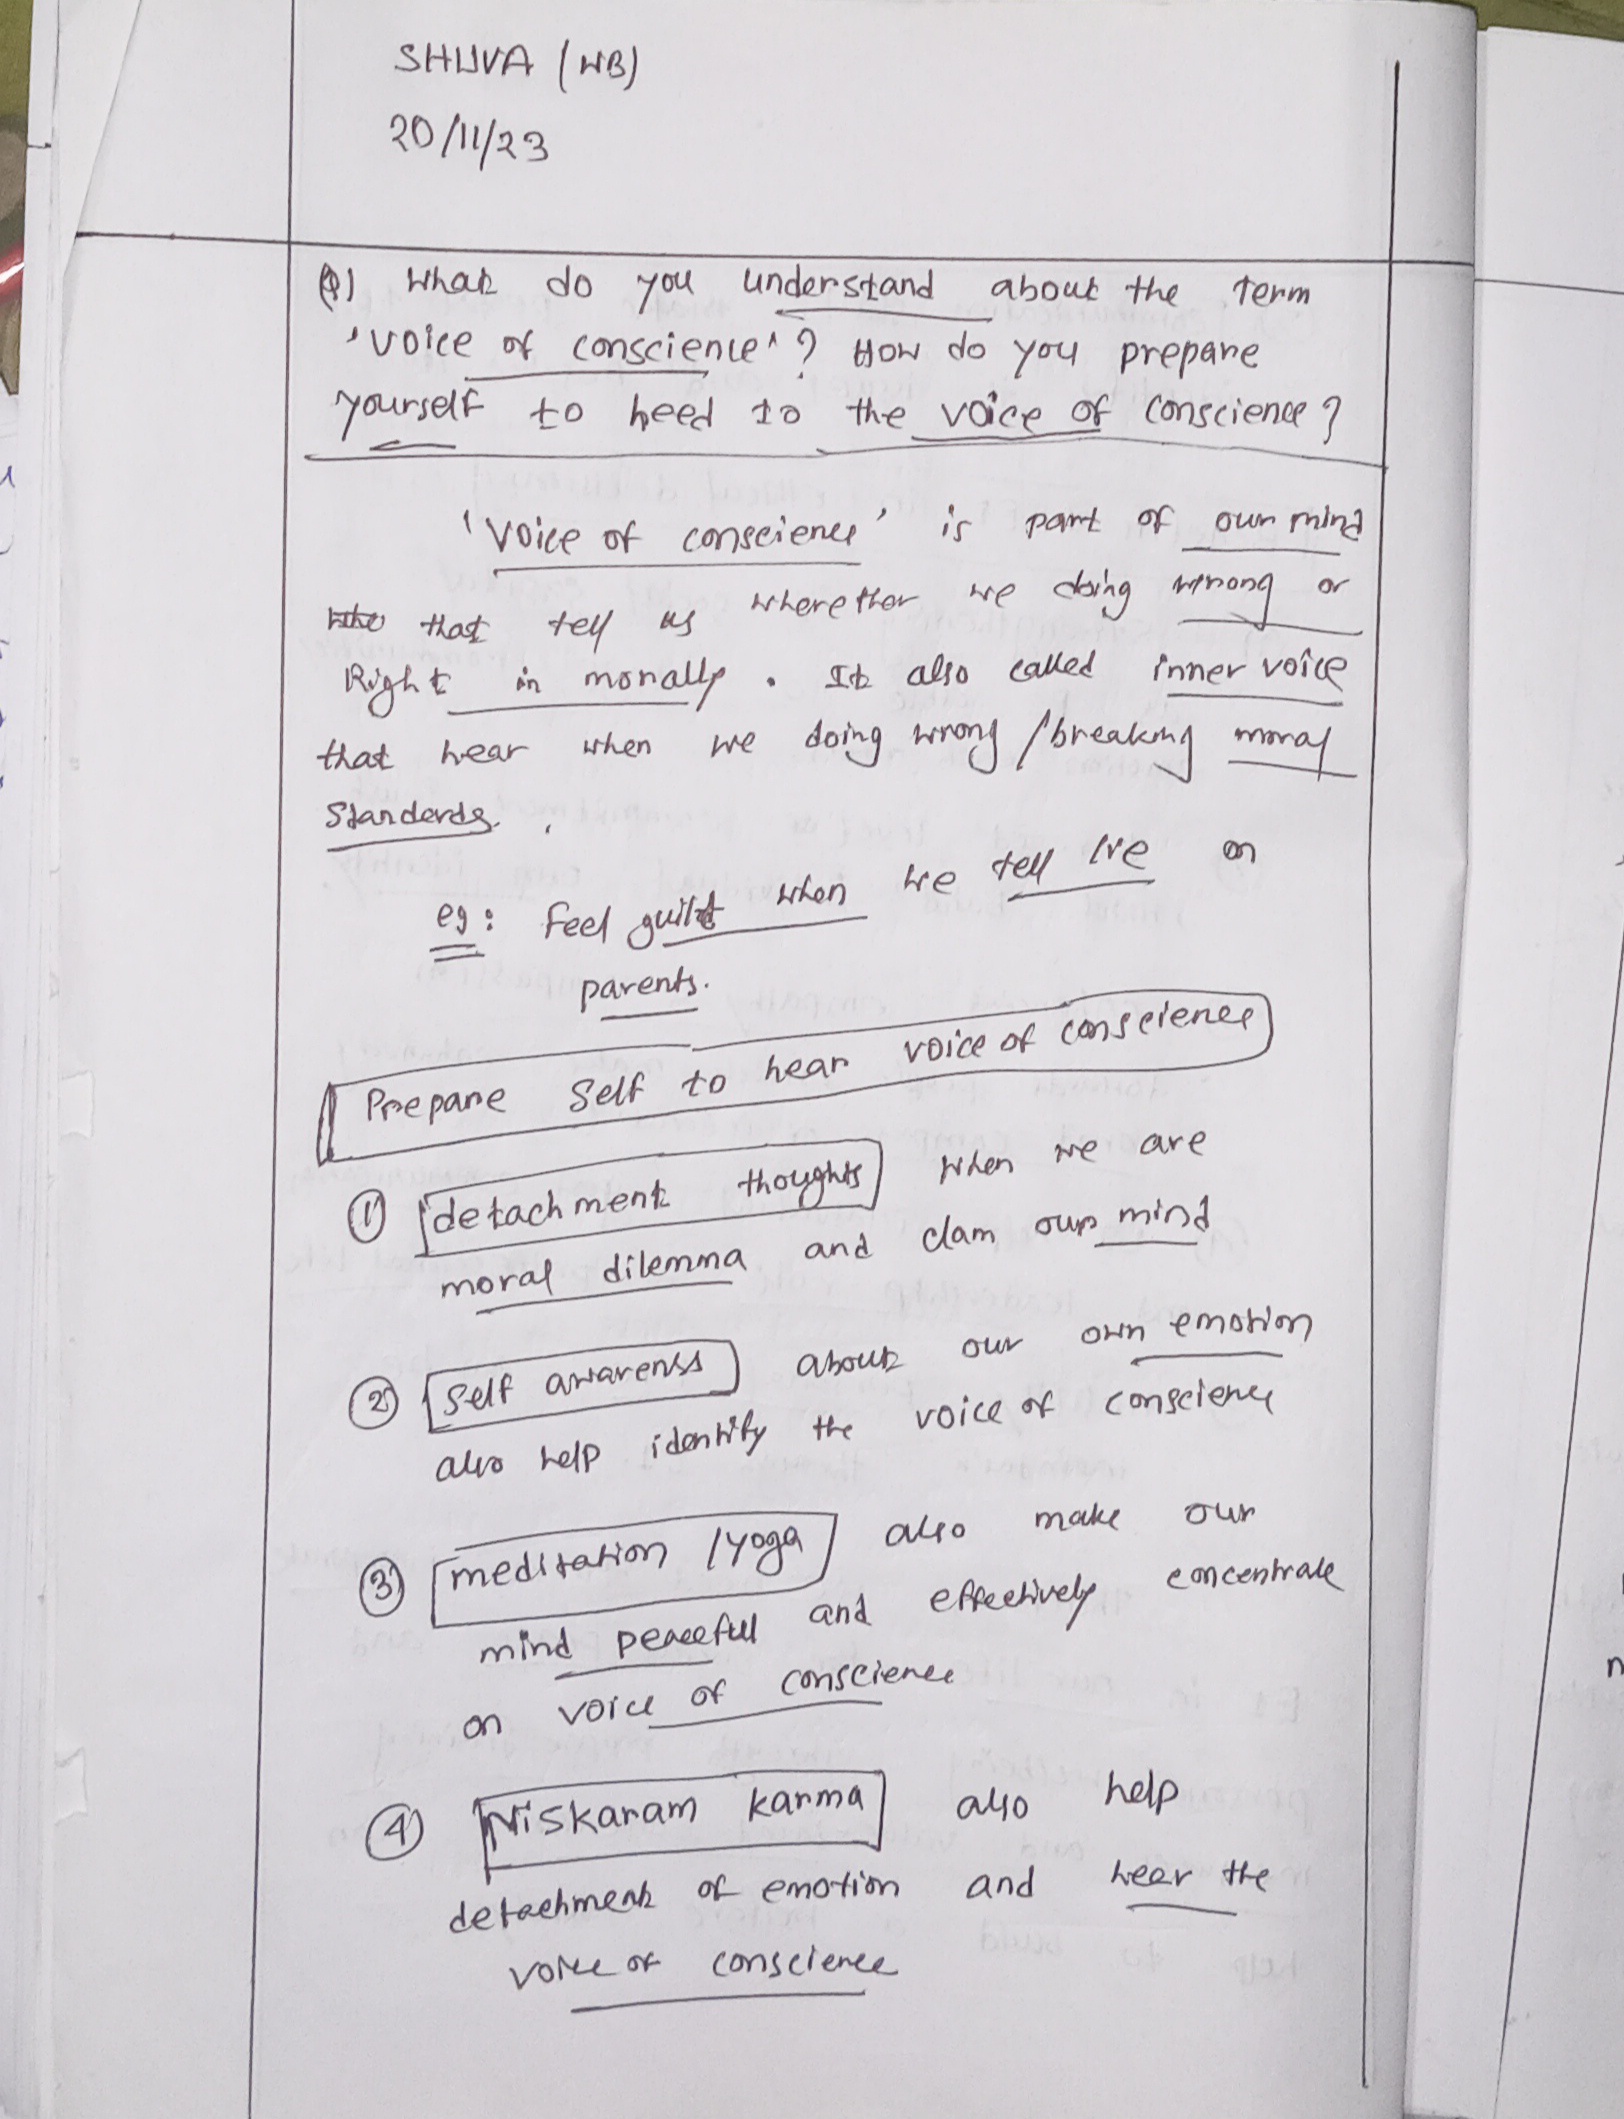 SHUVA (WB)
20/11/23
Q) What do you understand about the term
'voice of conscience'? How do you prepare
yourself to heed to the voice of conscience?
'Voice of conscience' is part of our mind
that tell us wherether we doing wrong or
Right in morally. It also called inner voice
that hear when we doing wrong / breaking moral
Standerds.
eg: feel guilt when we tell lie on
parents.
Prepare Self to hear voice of conscience
① detachment thoughts when we are
moral dilemma and clam our mind
② Self awarenss about our own emotion
also help identify the voice of conscience
③ meditation / yoga also make our
mind peaceful and effectively concentrate
on voice of conscience
④ Niskaram karma also help
detachment of emotion and hear the
voice of conscience